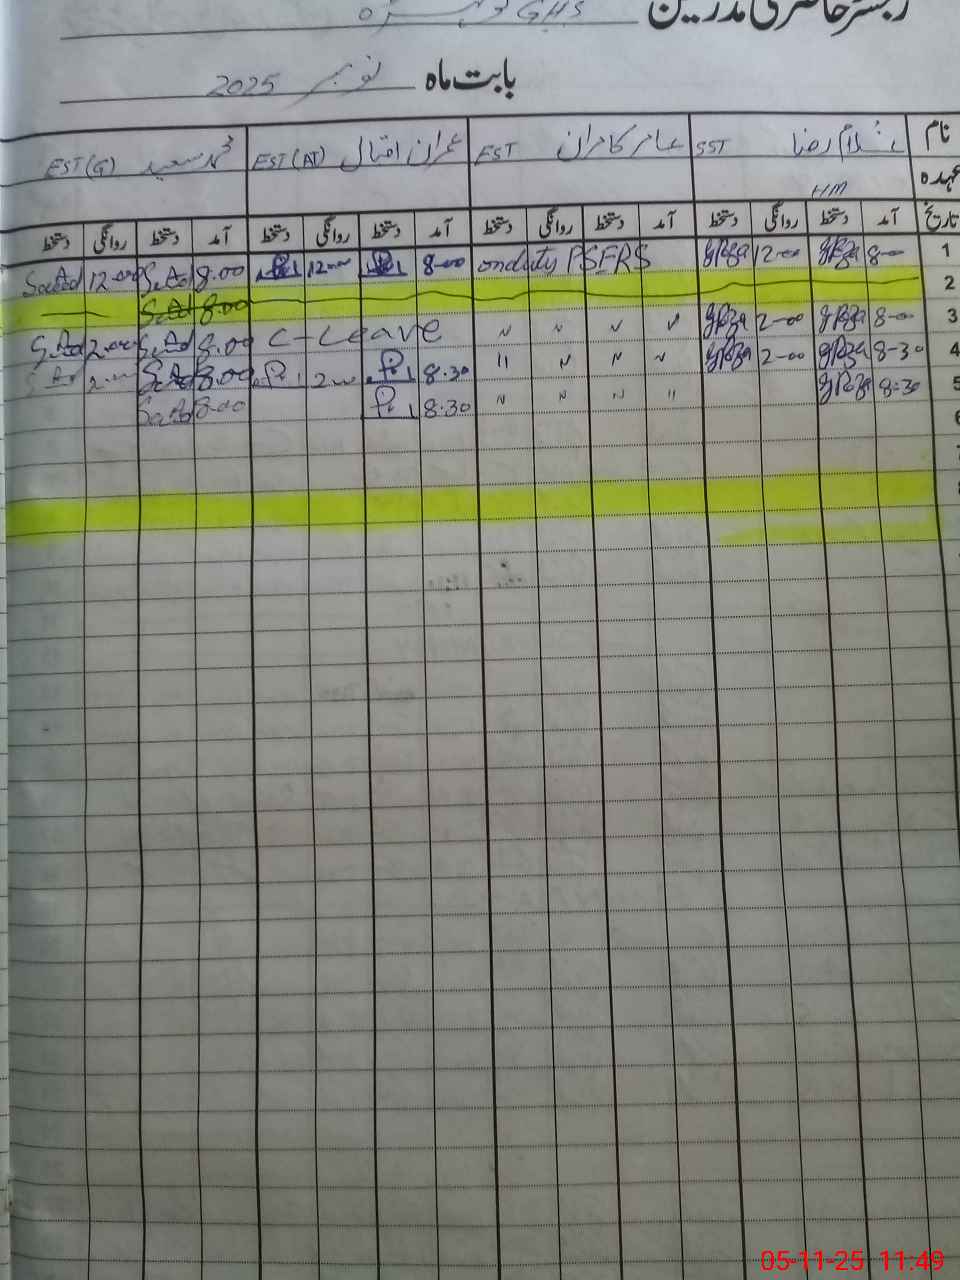 رجسٹر حاضری مدرسین GHS
بابت ماہ نومبر 2025
نام غلام رضا SST عامر کامران EST عمران اقبال EST (AT) محمد سعید EST (G)
عہدہ HM
تاریخ آمد دستخط روانگی دستخط آمد دستخط روانگی دستخط آمد دستخط روانگی دستخط آمد دستخط روانگی دستخط
1 8-00 gRza 12-00 gRza onduty PSERS 8-00 12-00 8.00 Saeed 12.00 Saeed
2 8.00 Saeed
3 8-00 gRza 2-00 gRza 〃 〃 〃 〃 C-Leave 8.00 Saeed 2.00 Saeed
4 8-30 gRza 2-00 gRza 〃 〃 〃 " 8.30 2-00 8.00 Saeed 2.00 Saeed
5 8-30 gRza " 〃 〃 〃 8.30 8.00 Saeed
6
7
8
05-11-25 11:49